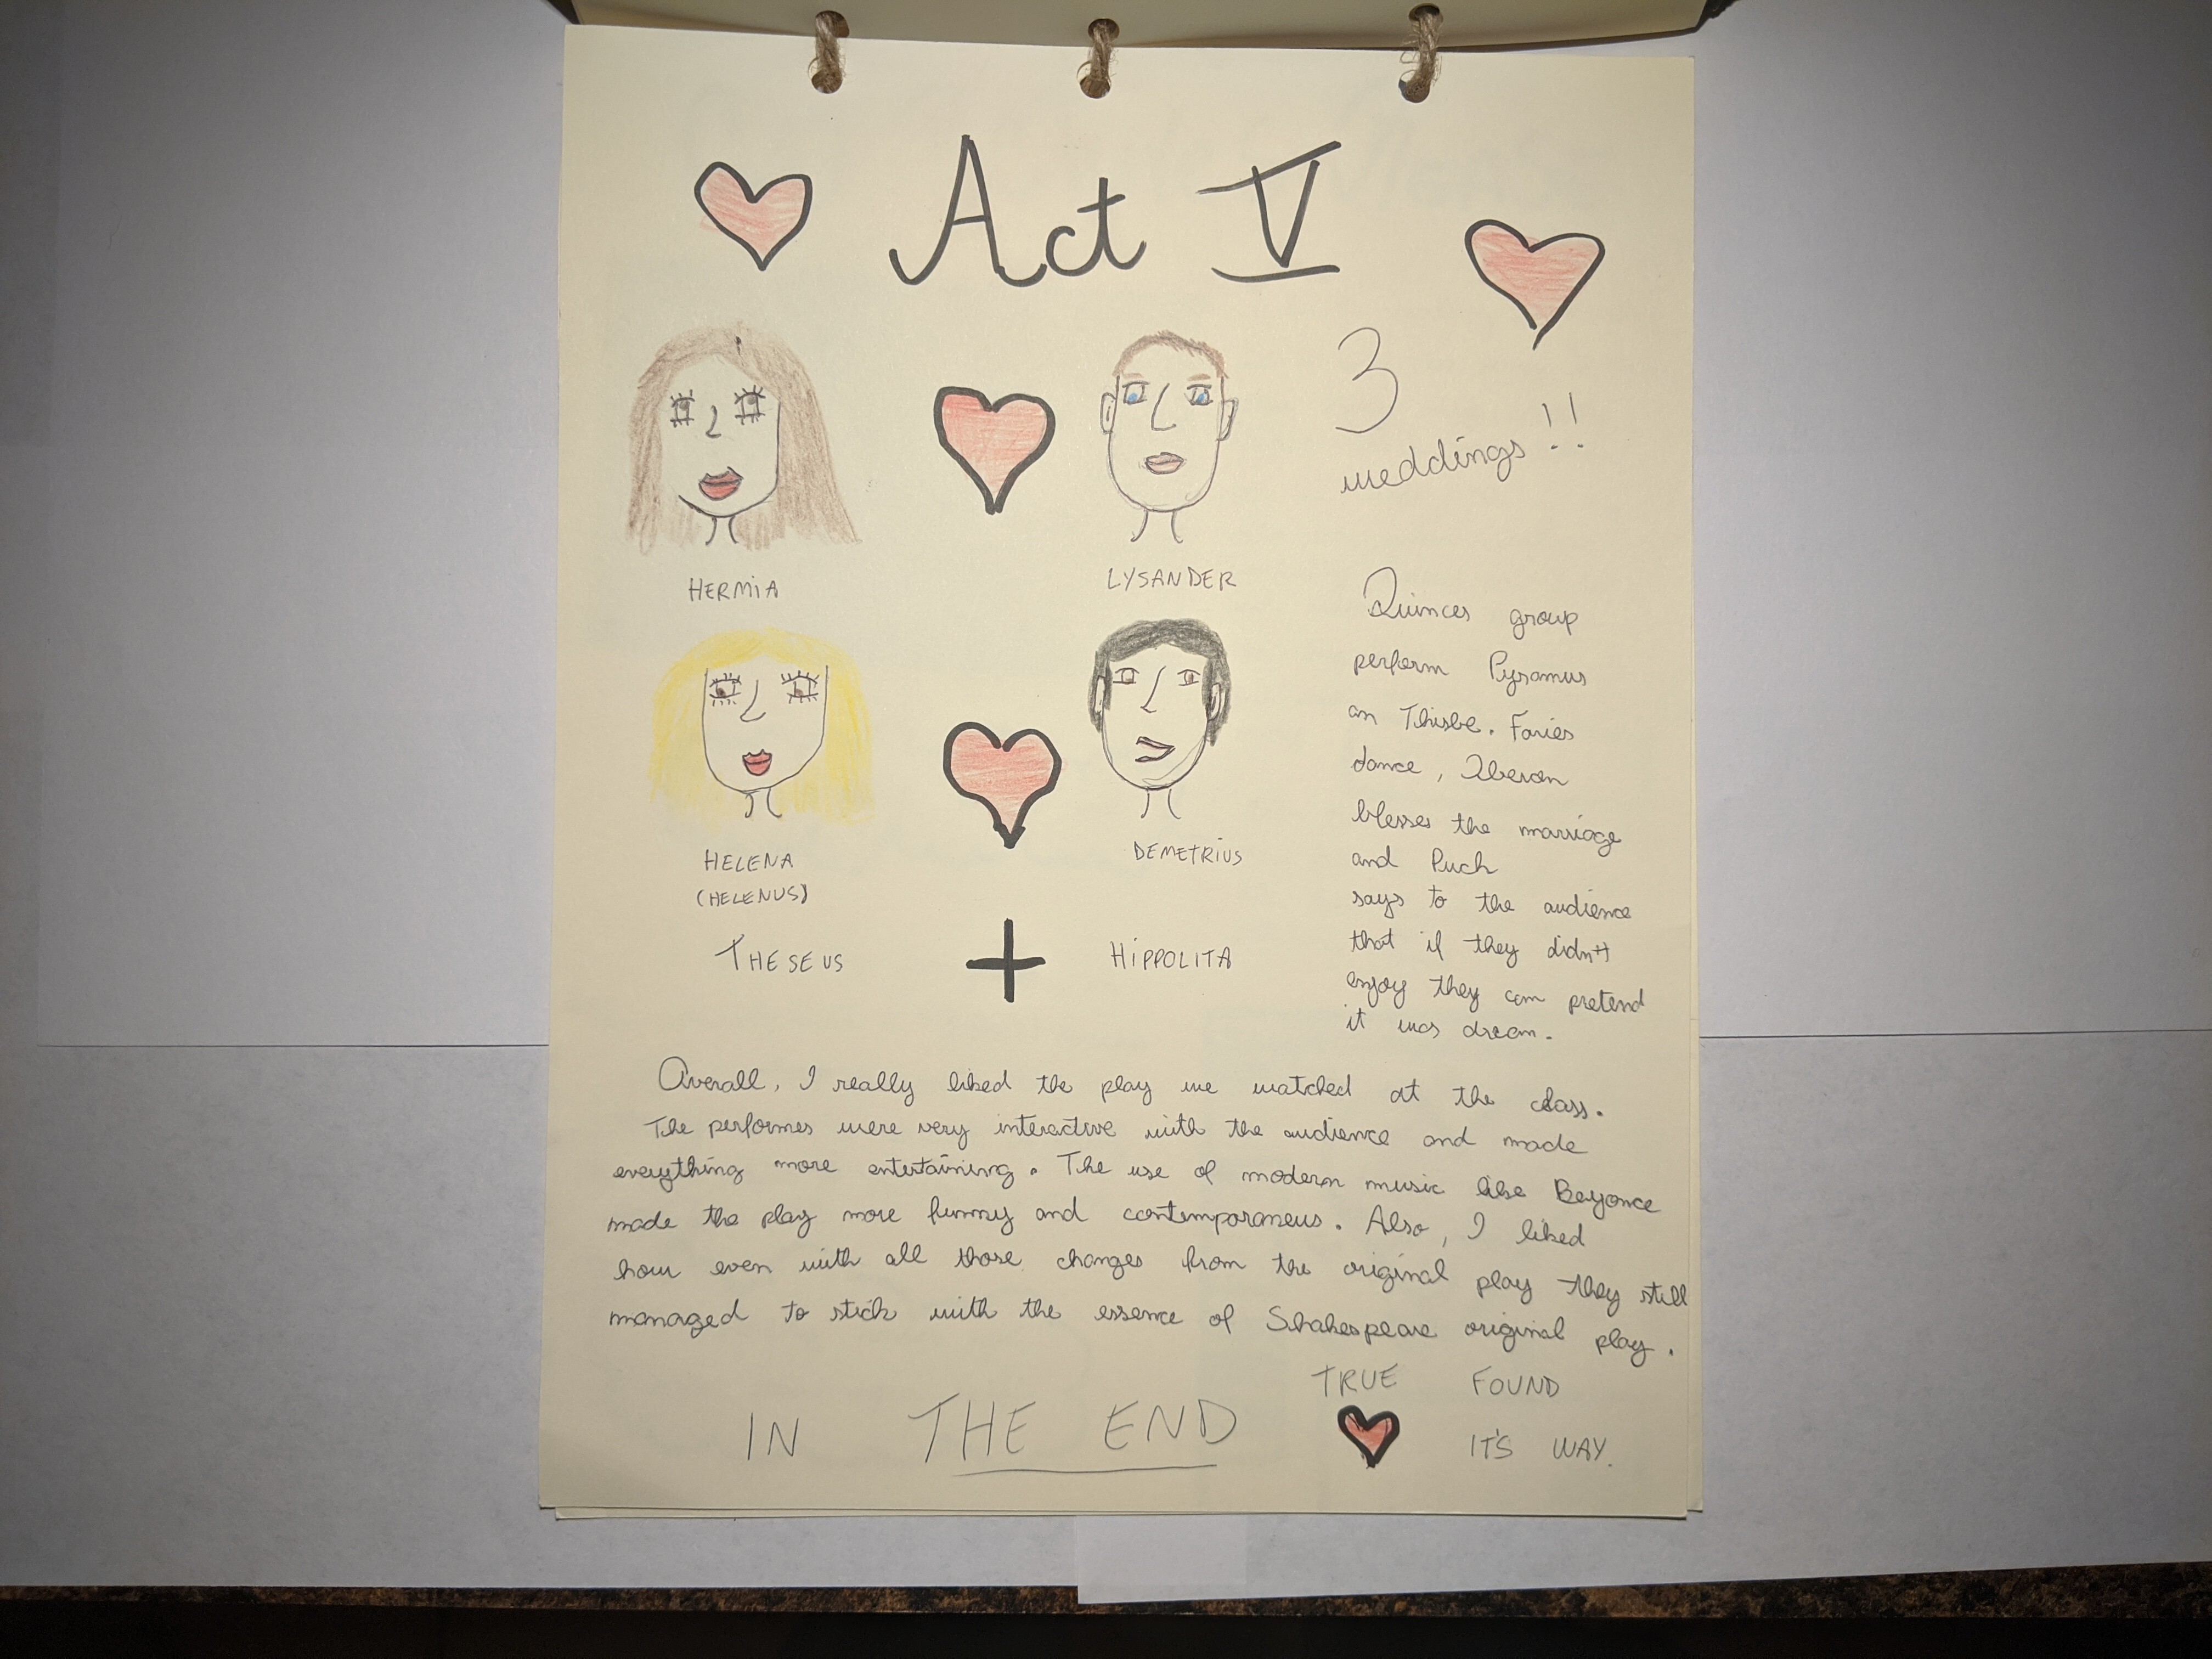 Act V
3
weddings!!
HERMiA
LYSANDER
HELENA
(HELENUS)
DEMETRiUS
THESEUS
+
HiPPOLiTA
Quinces group
perform Pyramus
an Thisbe. Faries
dance, Oberon
blesses the marriage
and Puck
says to the audience
that if they didn't
enjoy they can pretend
it was dream.
Overall, I really liked the play we watched at the class.
The performes were very interactive with the audience and made
everything more entertaining. The use of modern music like Beyonce
made the play more funny and contemporaneus. Also, I liked
how even with all those changes from the original play they still
managed to stick with the essence of Shakespeare original play.
IN THE END
TRUE FOUND
IT'S WAY.